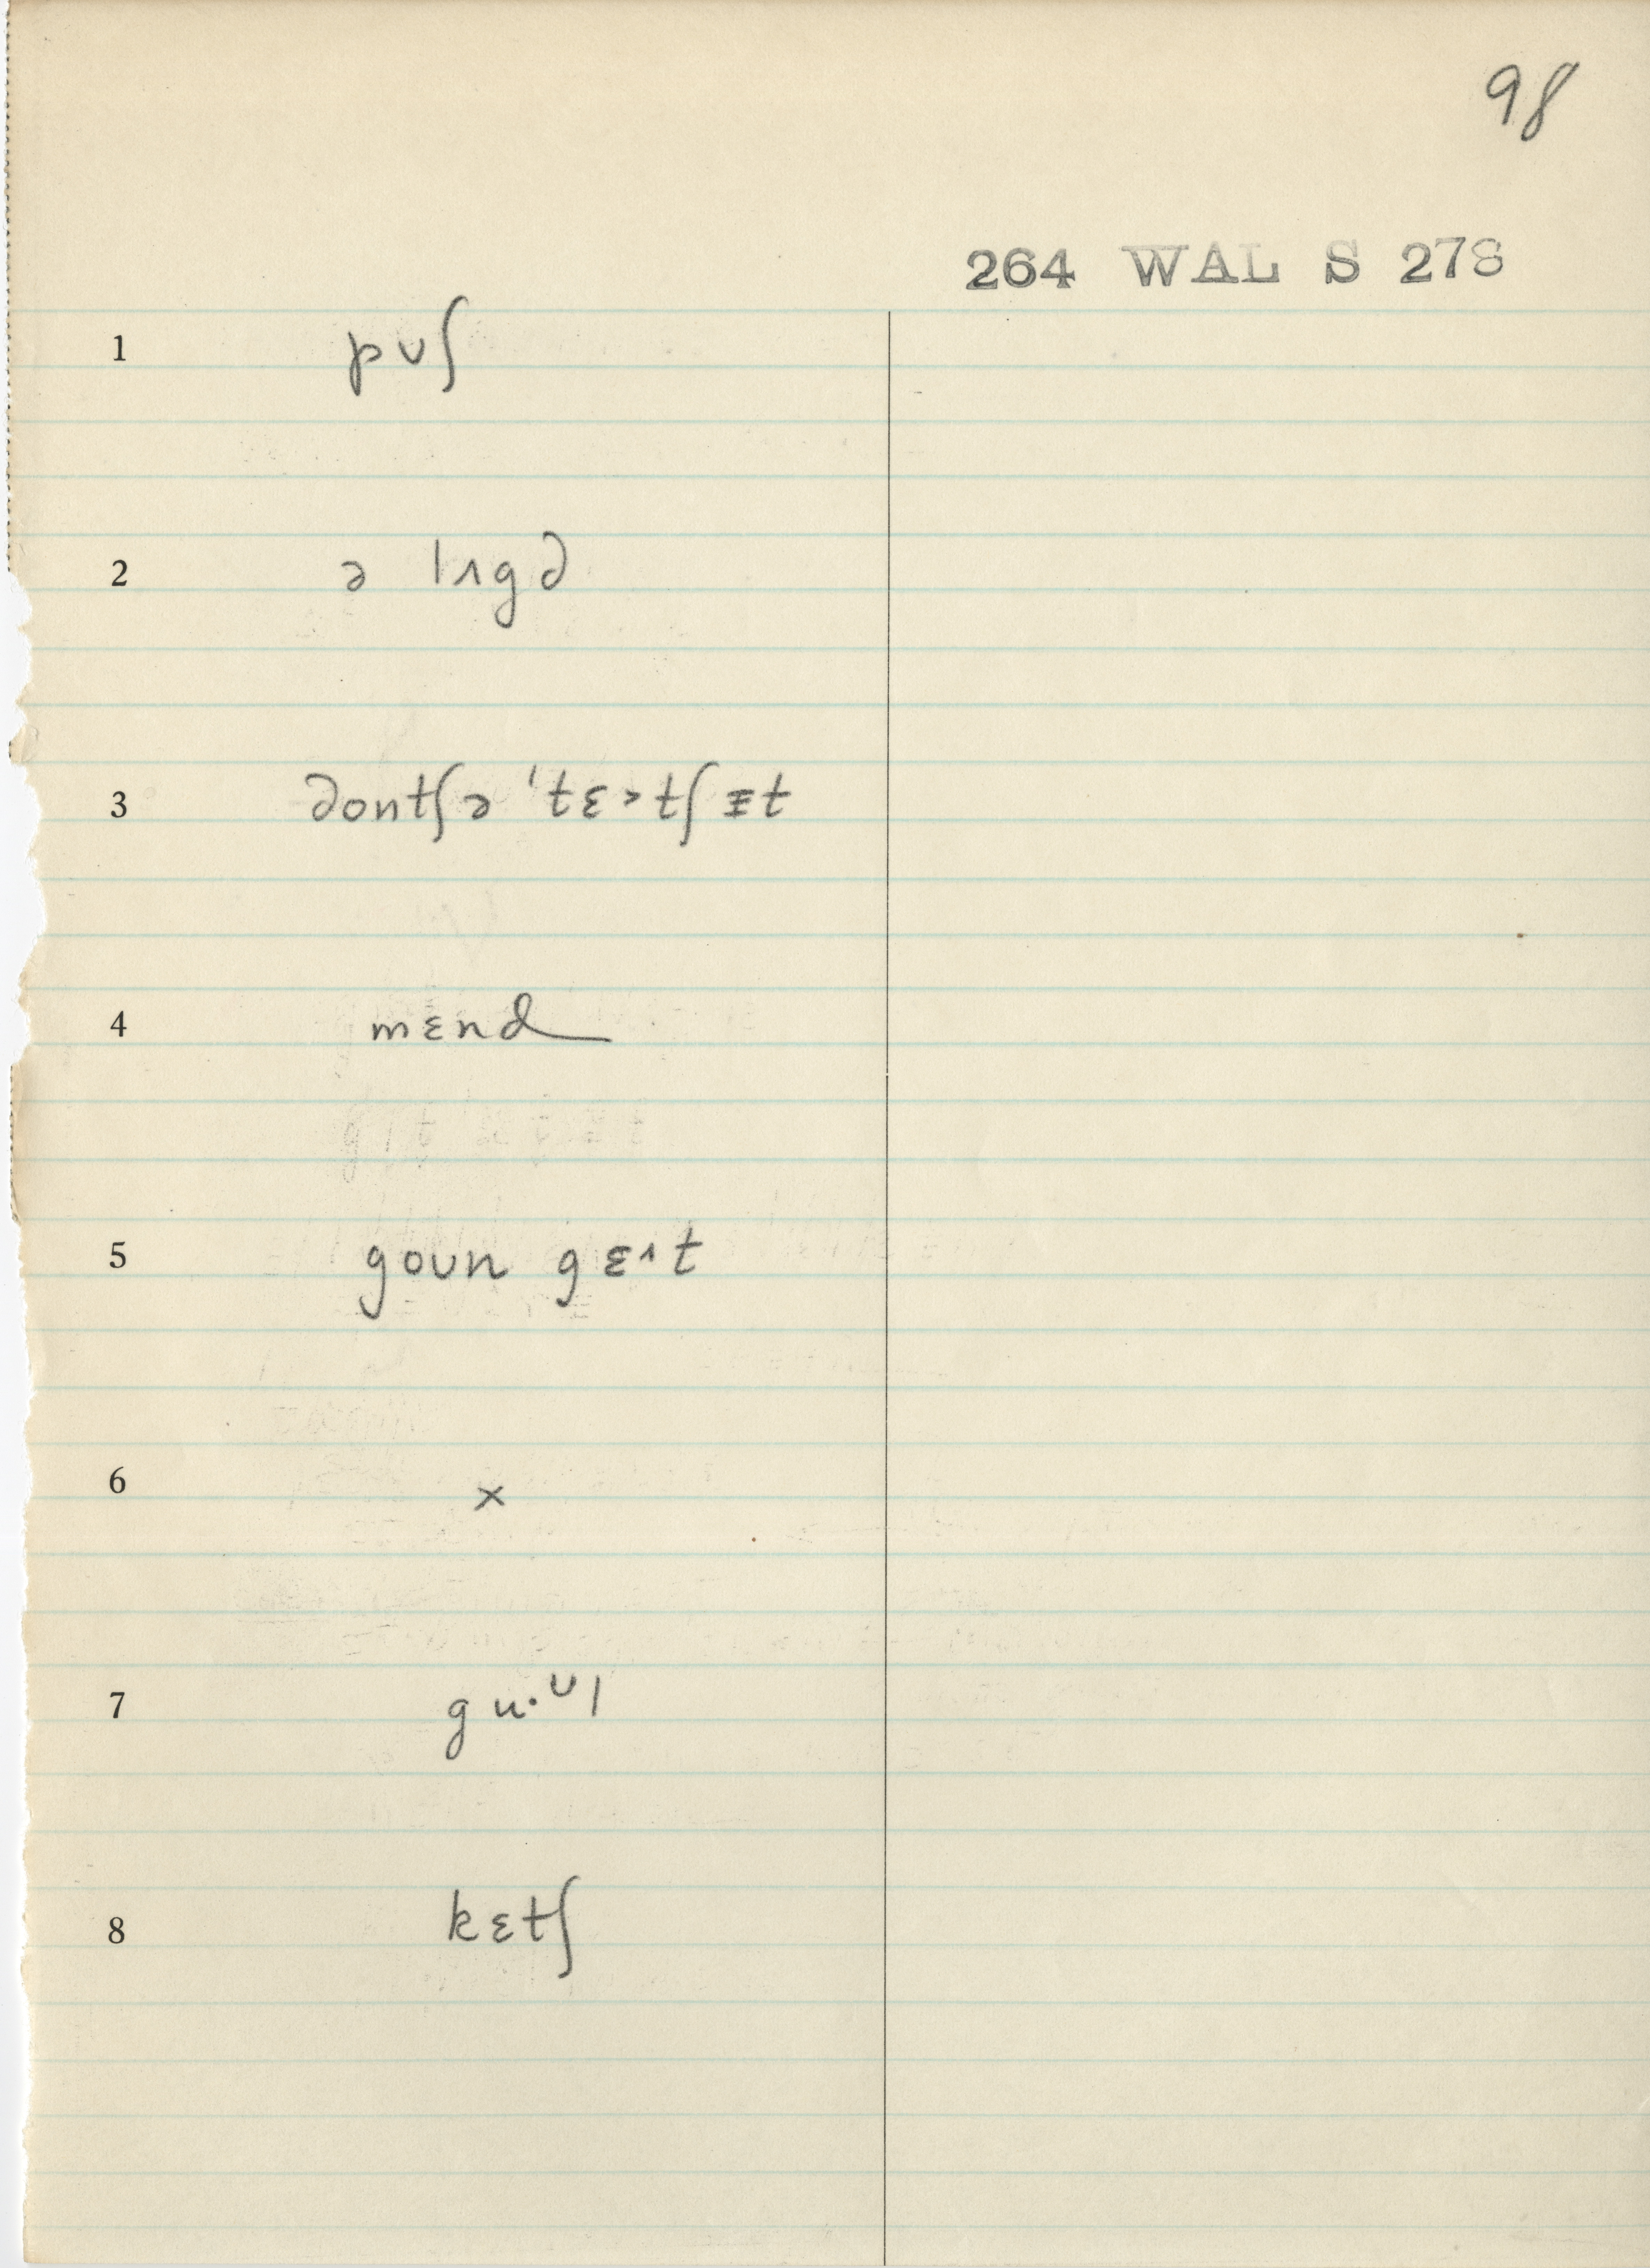 98
264 WAL S 278
1 pʊʃ
2 ə lʌgə
3 ədontʃə 'tɛ˃tʃɪt
4 mɛnd
5 goʊn gɛ^t
6 ×
7 gu·ᶷl
8 kɛtʃ